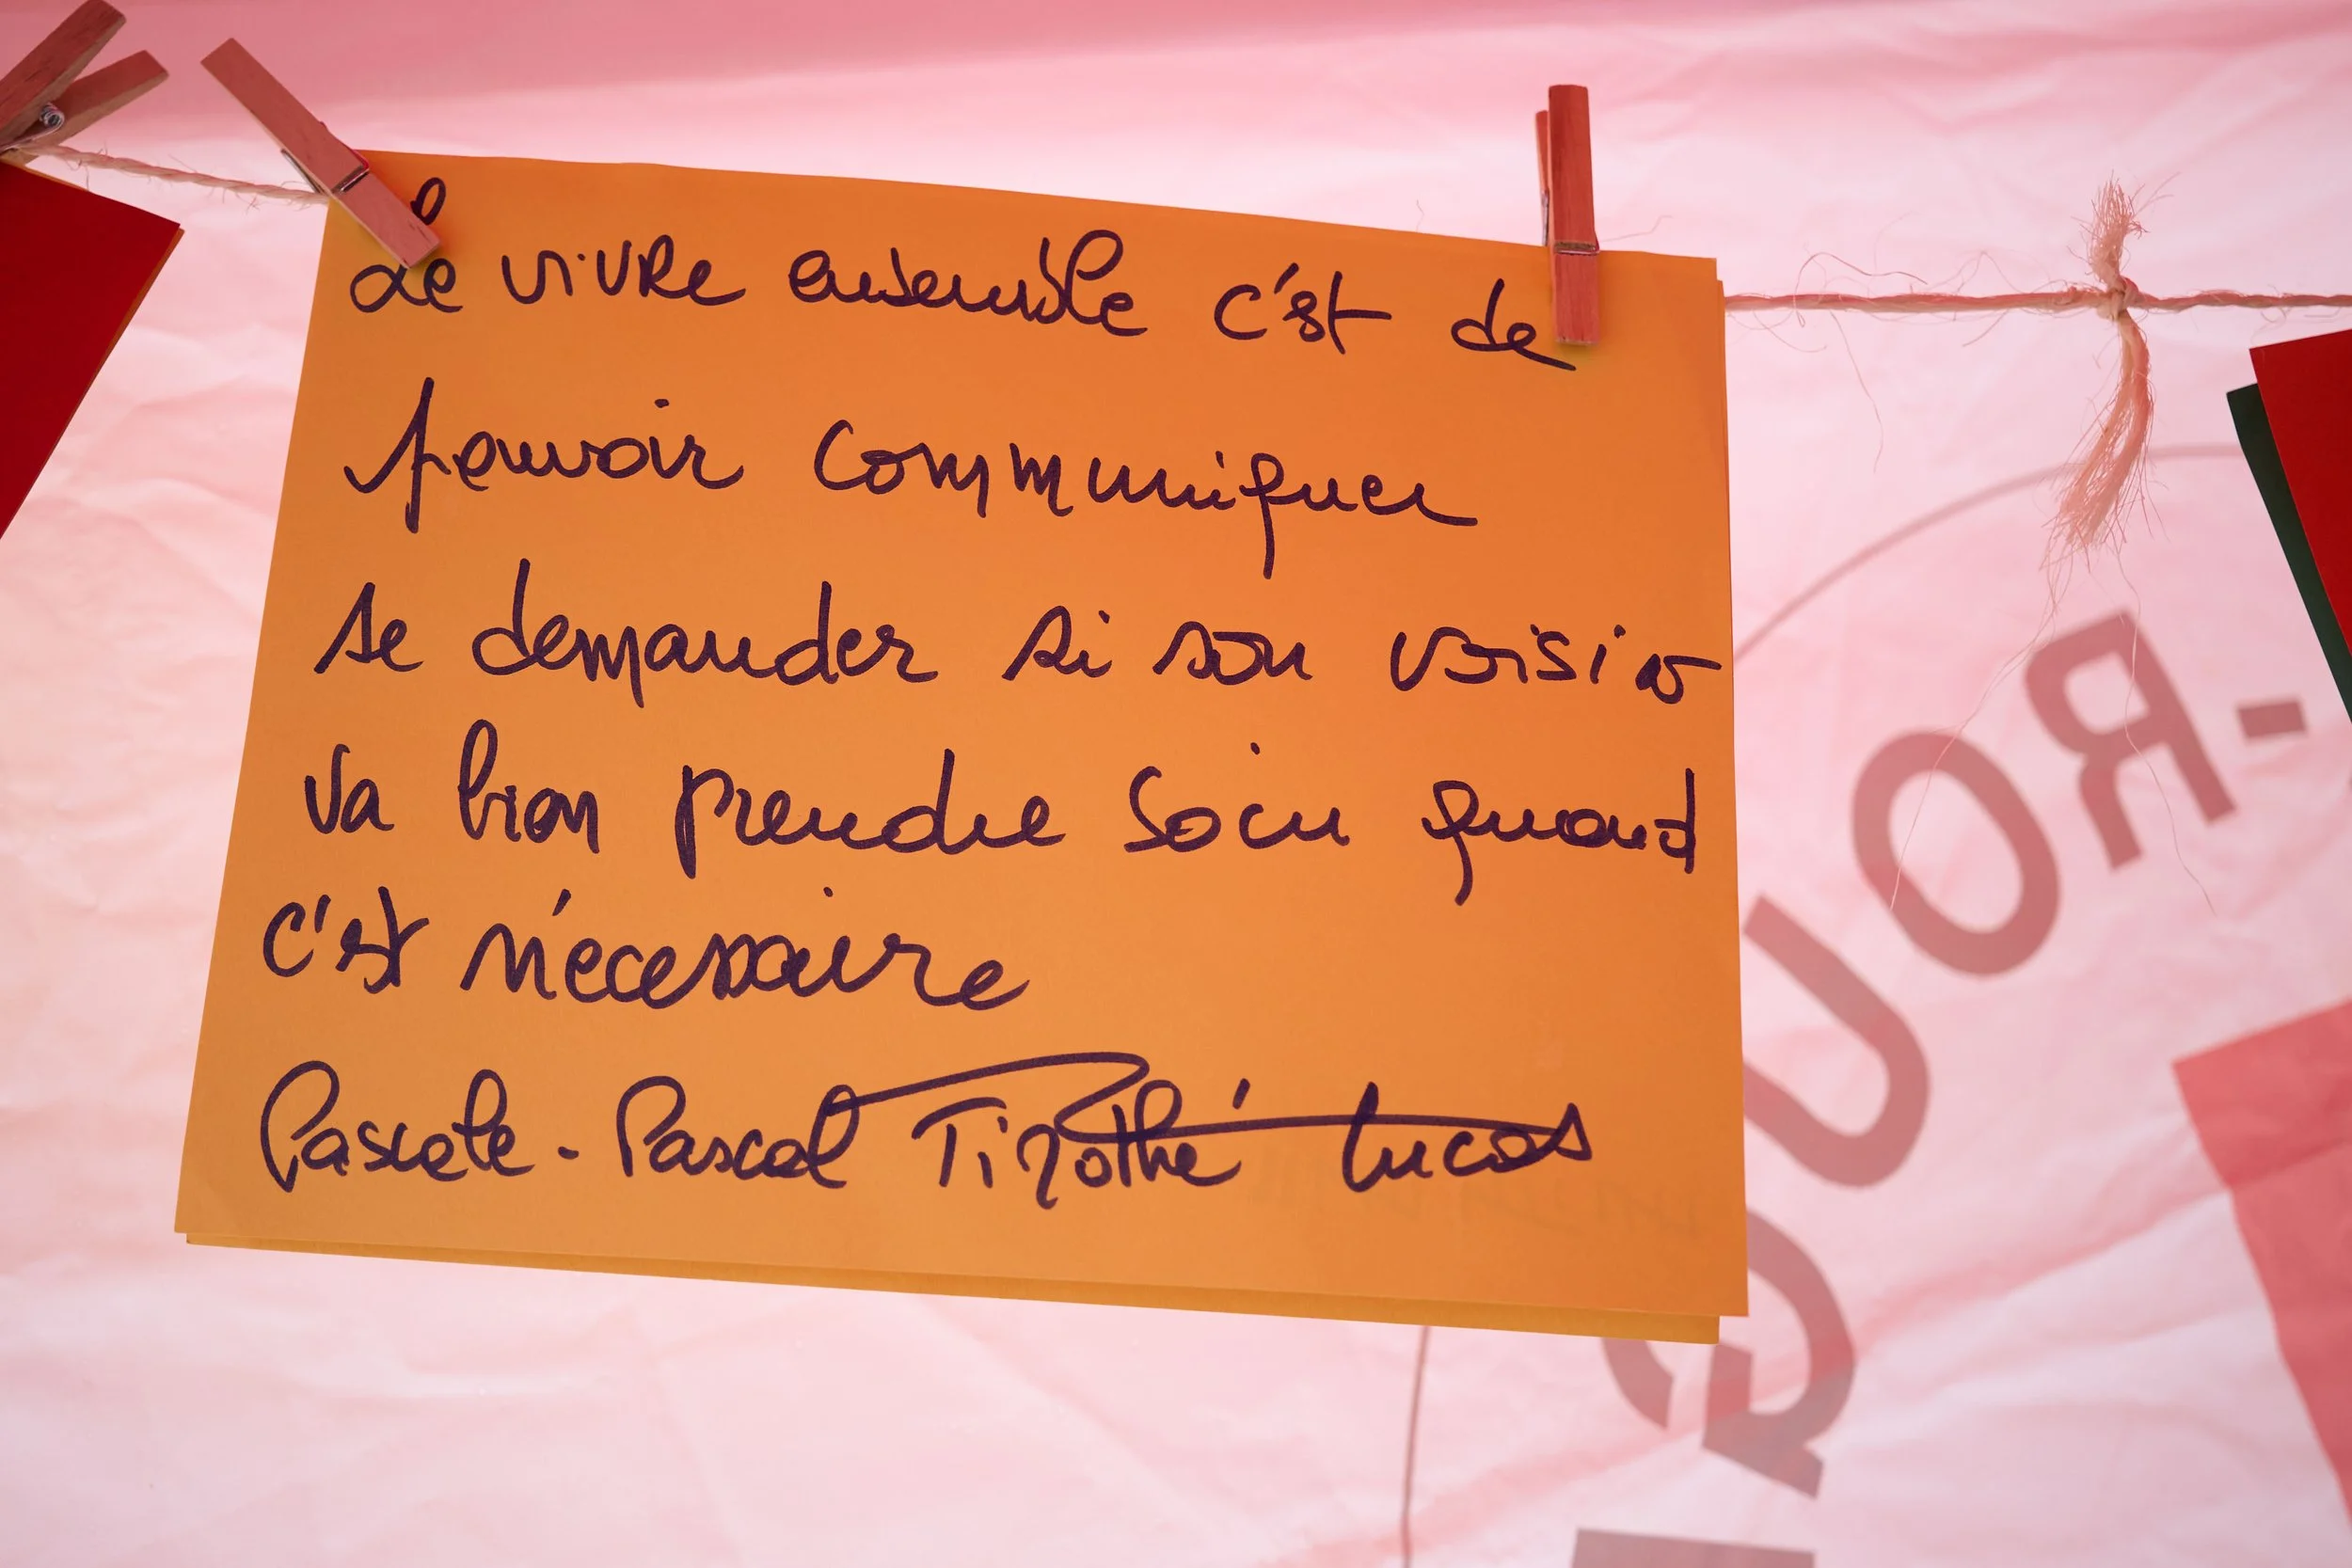 Le vivre ensemble c'est de
pouvoir communiquer
se demander si son voisin
va bien prendre soin quand
c'est nécessaire
Pascale - Pascal Timothé Lucas
-ROUQ